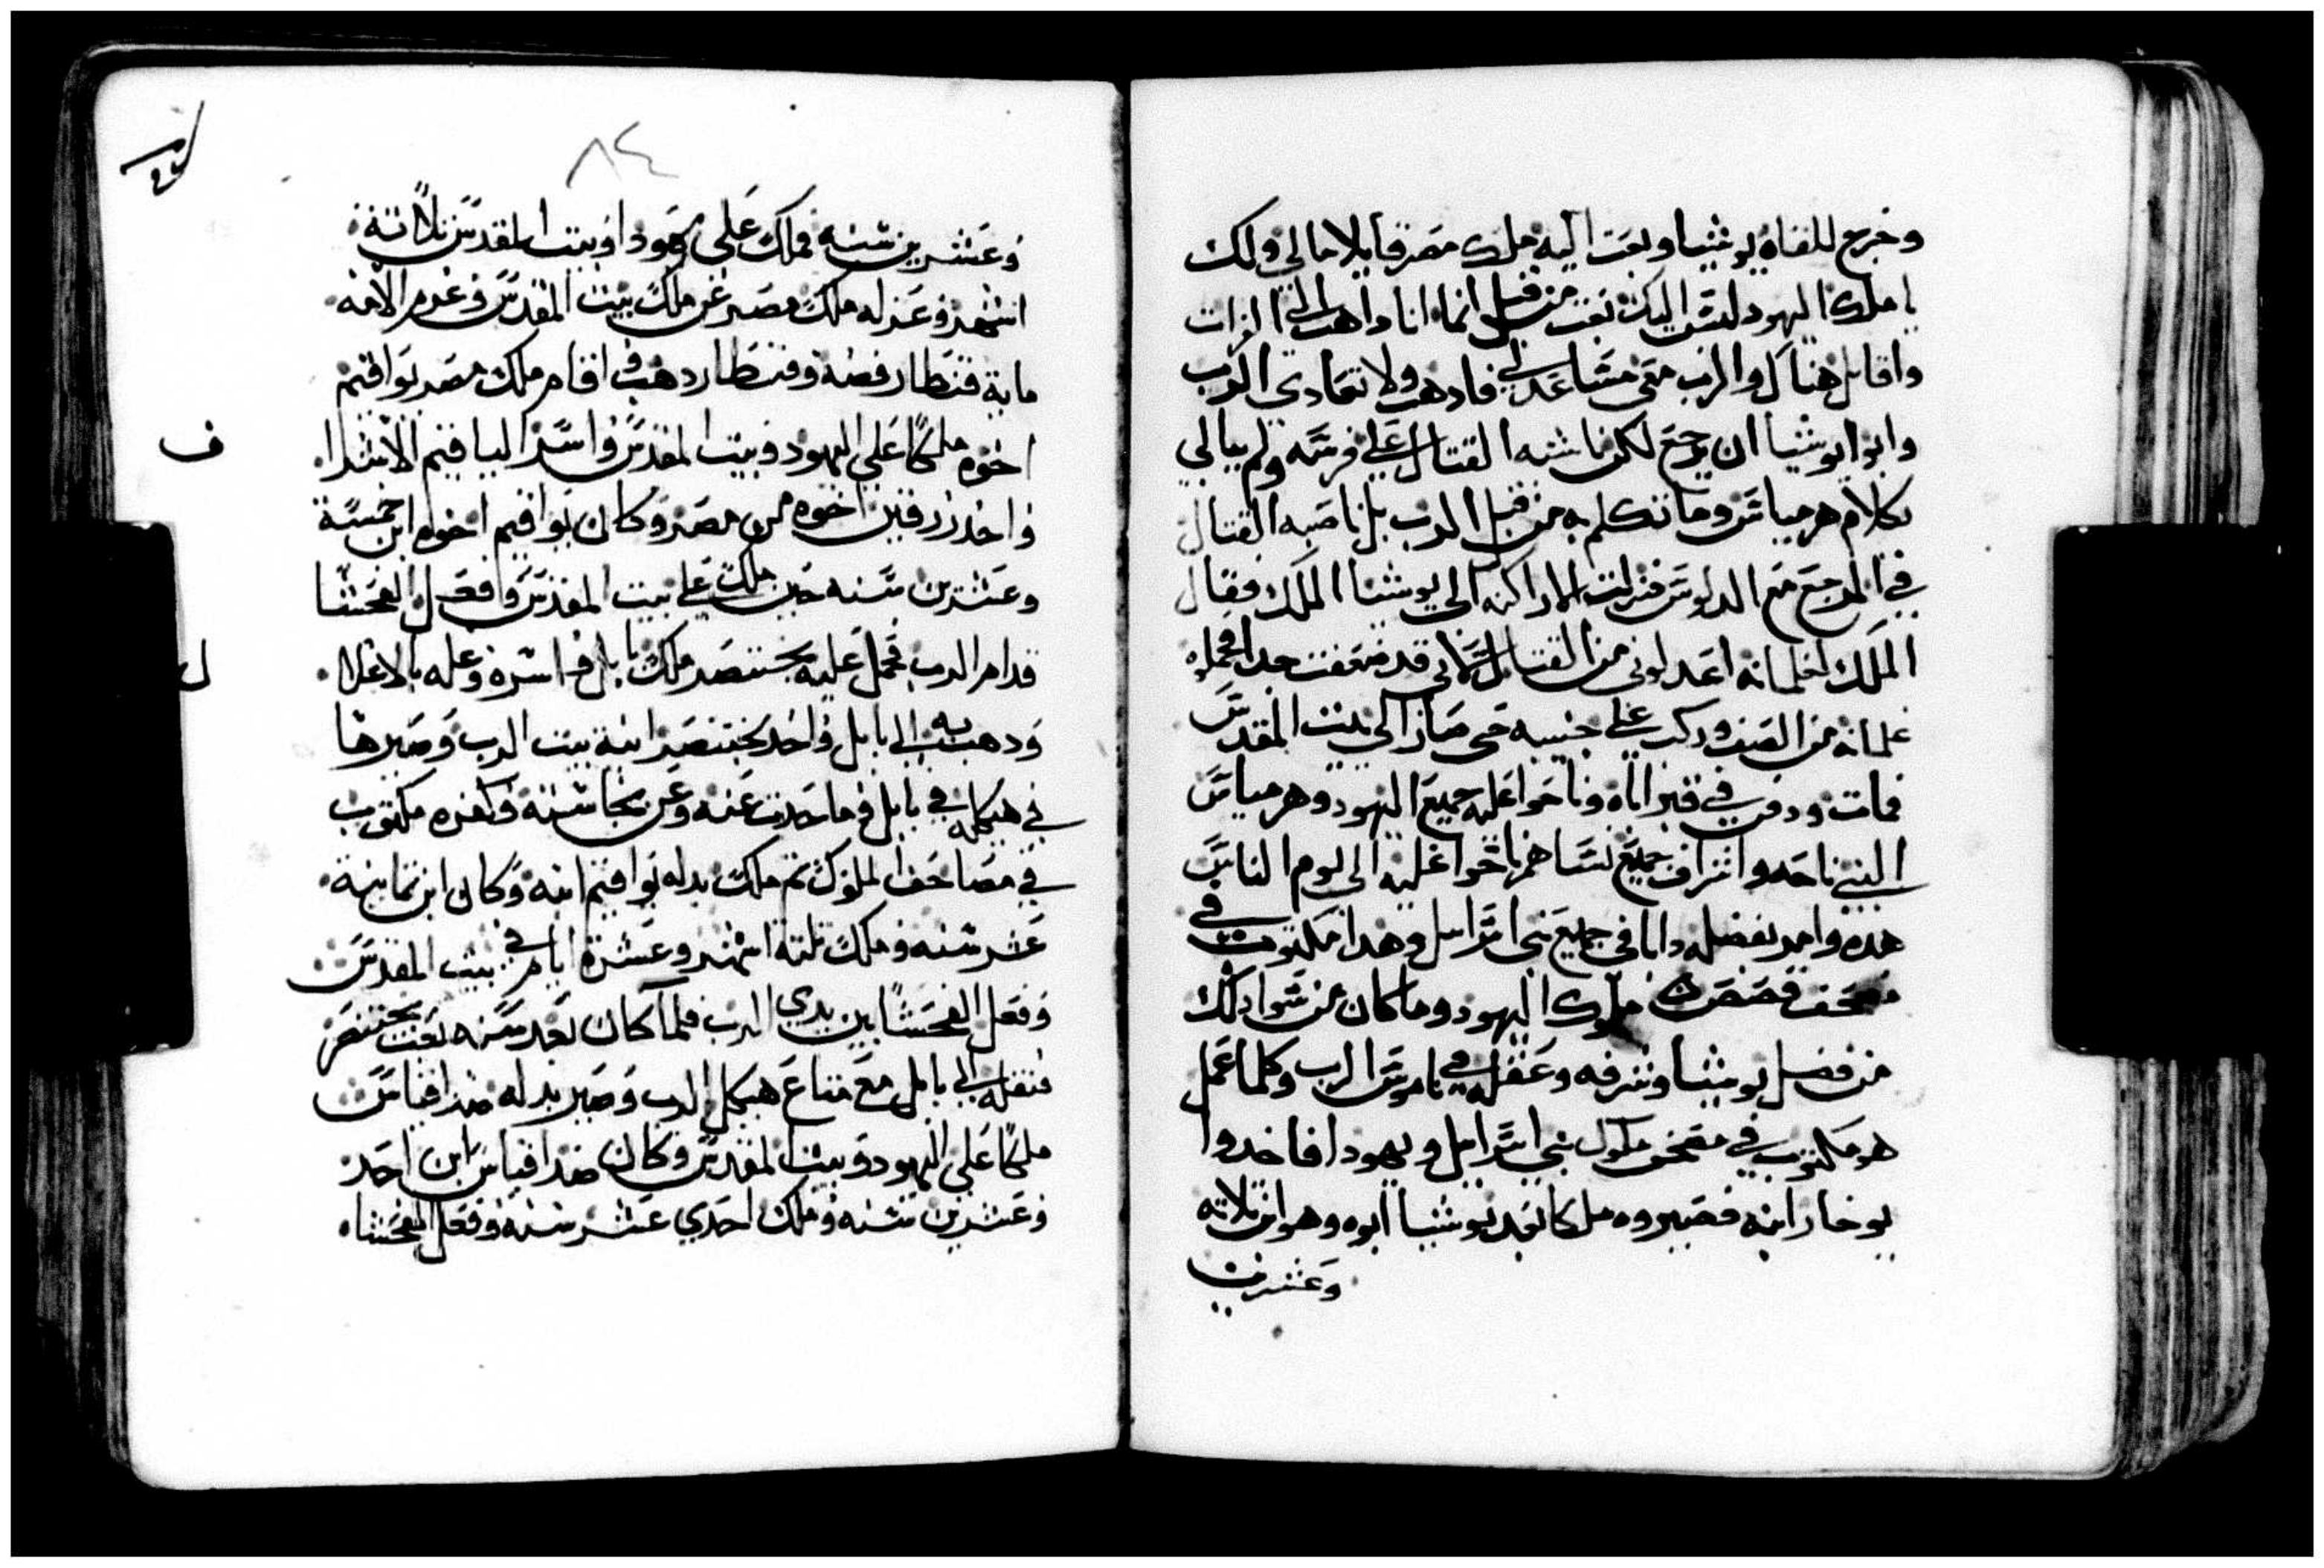 وخرج للقاه يوشيا وبعت اليه ملك مصر قايلا مالي ولك
يا ملك اليهود ليس اليك بعت من قبل انما انا داهب الي الفرات
واقاتل هناك والرب متي مساعد لي فادهب ولا تعادي الرب
وابوا يوشيا ان يرجع لكن ناشبه القتال علي فرسه ولم يبالي
بكلام هرمياس وما تكلم به من قبل الرب بل ناصبه القتال
في المرج مع فنزلت الاراكنه الي يوشيا الملك فقال
الملك لغلمانه اعدلوني من القتال لاني قد ضعفت جدا فحمله
غلمانه من الصف وركب علي جنيبه حتي صار الي بيت المقدس
فمات ودفن في قبر اباه وناحوا عليه جميع اليهود وهرمياس
النبي ناحه واشراف جميع نساهم ناحوا عليه الي يوم الناس
هده واحد بفضله دابا في جميع بني اسراىىل وهدا مكتوب في
مصحف قصص ملوك اليهود وما كان من سوا دلك
من فضل يوشيا وشرفه وعقله في ناموس الرب وكلما عمل
هو مكتوب في مصحف ملوك بني اسراييل ويهودا فاخدوا
يوخار ابنه فصيروه ملكا بعد يوشيا ابوه وهو ابن تلاته
وعشرين
٨٤
وعشرين سنه فملك علي يهودا وبيت المقدس تلاتة
اشهر وعزله ملك مصر عن ملك بيت المقدس وغرم الامه
ماية قنطار فضه وقنطار دهب واقام ملك مصر يواقيم
اخوه ملكا علي اليهود وبيت المقدس واسر الياقيم الاشرا
واخد زرفين اخوه من مصر وكان يواقيم اخوه ابن خمسة
وعشرين سنه حين ملك علي بيت المقدس وفعل الفحشا
قدام الرب فحمل عليه بختنصر ملك بابل فاسره وغله بالاغلال
ودهب به الي بابل واخد بختنصر انية بيت الرب وصيرها
في هيكله في بابل وما حدت عنه وعن نجاسته وكفره مكتوب
في مصاحف الملوك تم ملك بدله يواقيم ابنه وكان ابن تمانيه
عشر سنه وملك تلتة اشهر وعشرة ايام في بيت المقدس
وفعل الفحشا بين يدي الرب فلما كان بعد سنه بعت بختنصر
فنقله الي بابل مع متاع هيكل الرب وصير بدله صداقياس
ملكا علي اليهود وبيت المقدس وكان صداقياس ابن احد
وعشرين سنه وملك احدي عشر سنه وفعل الفحشا
ف
ل